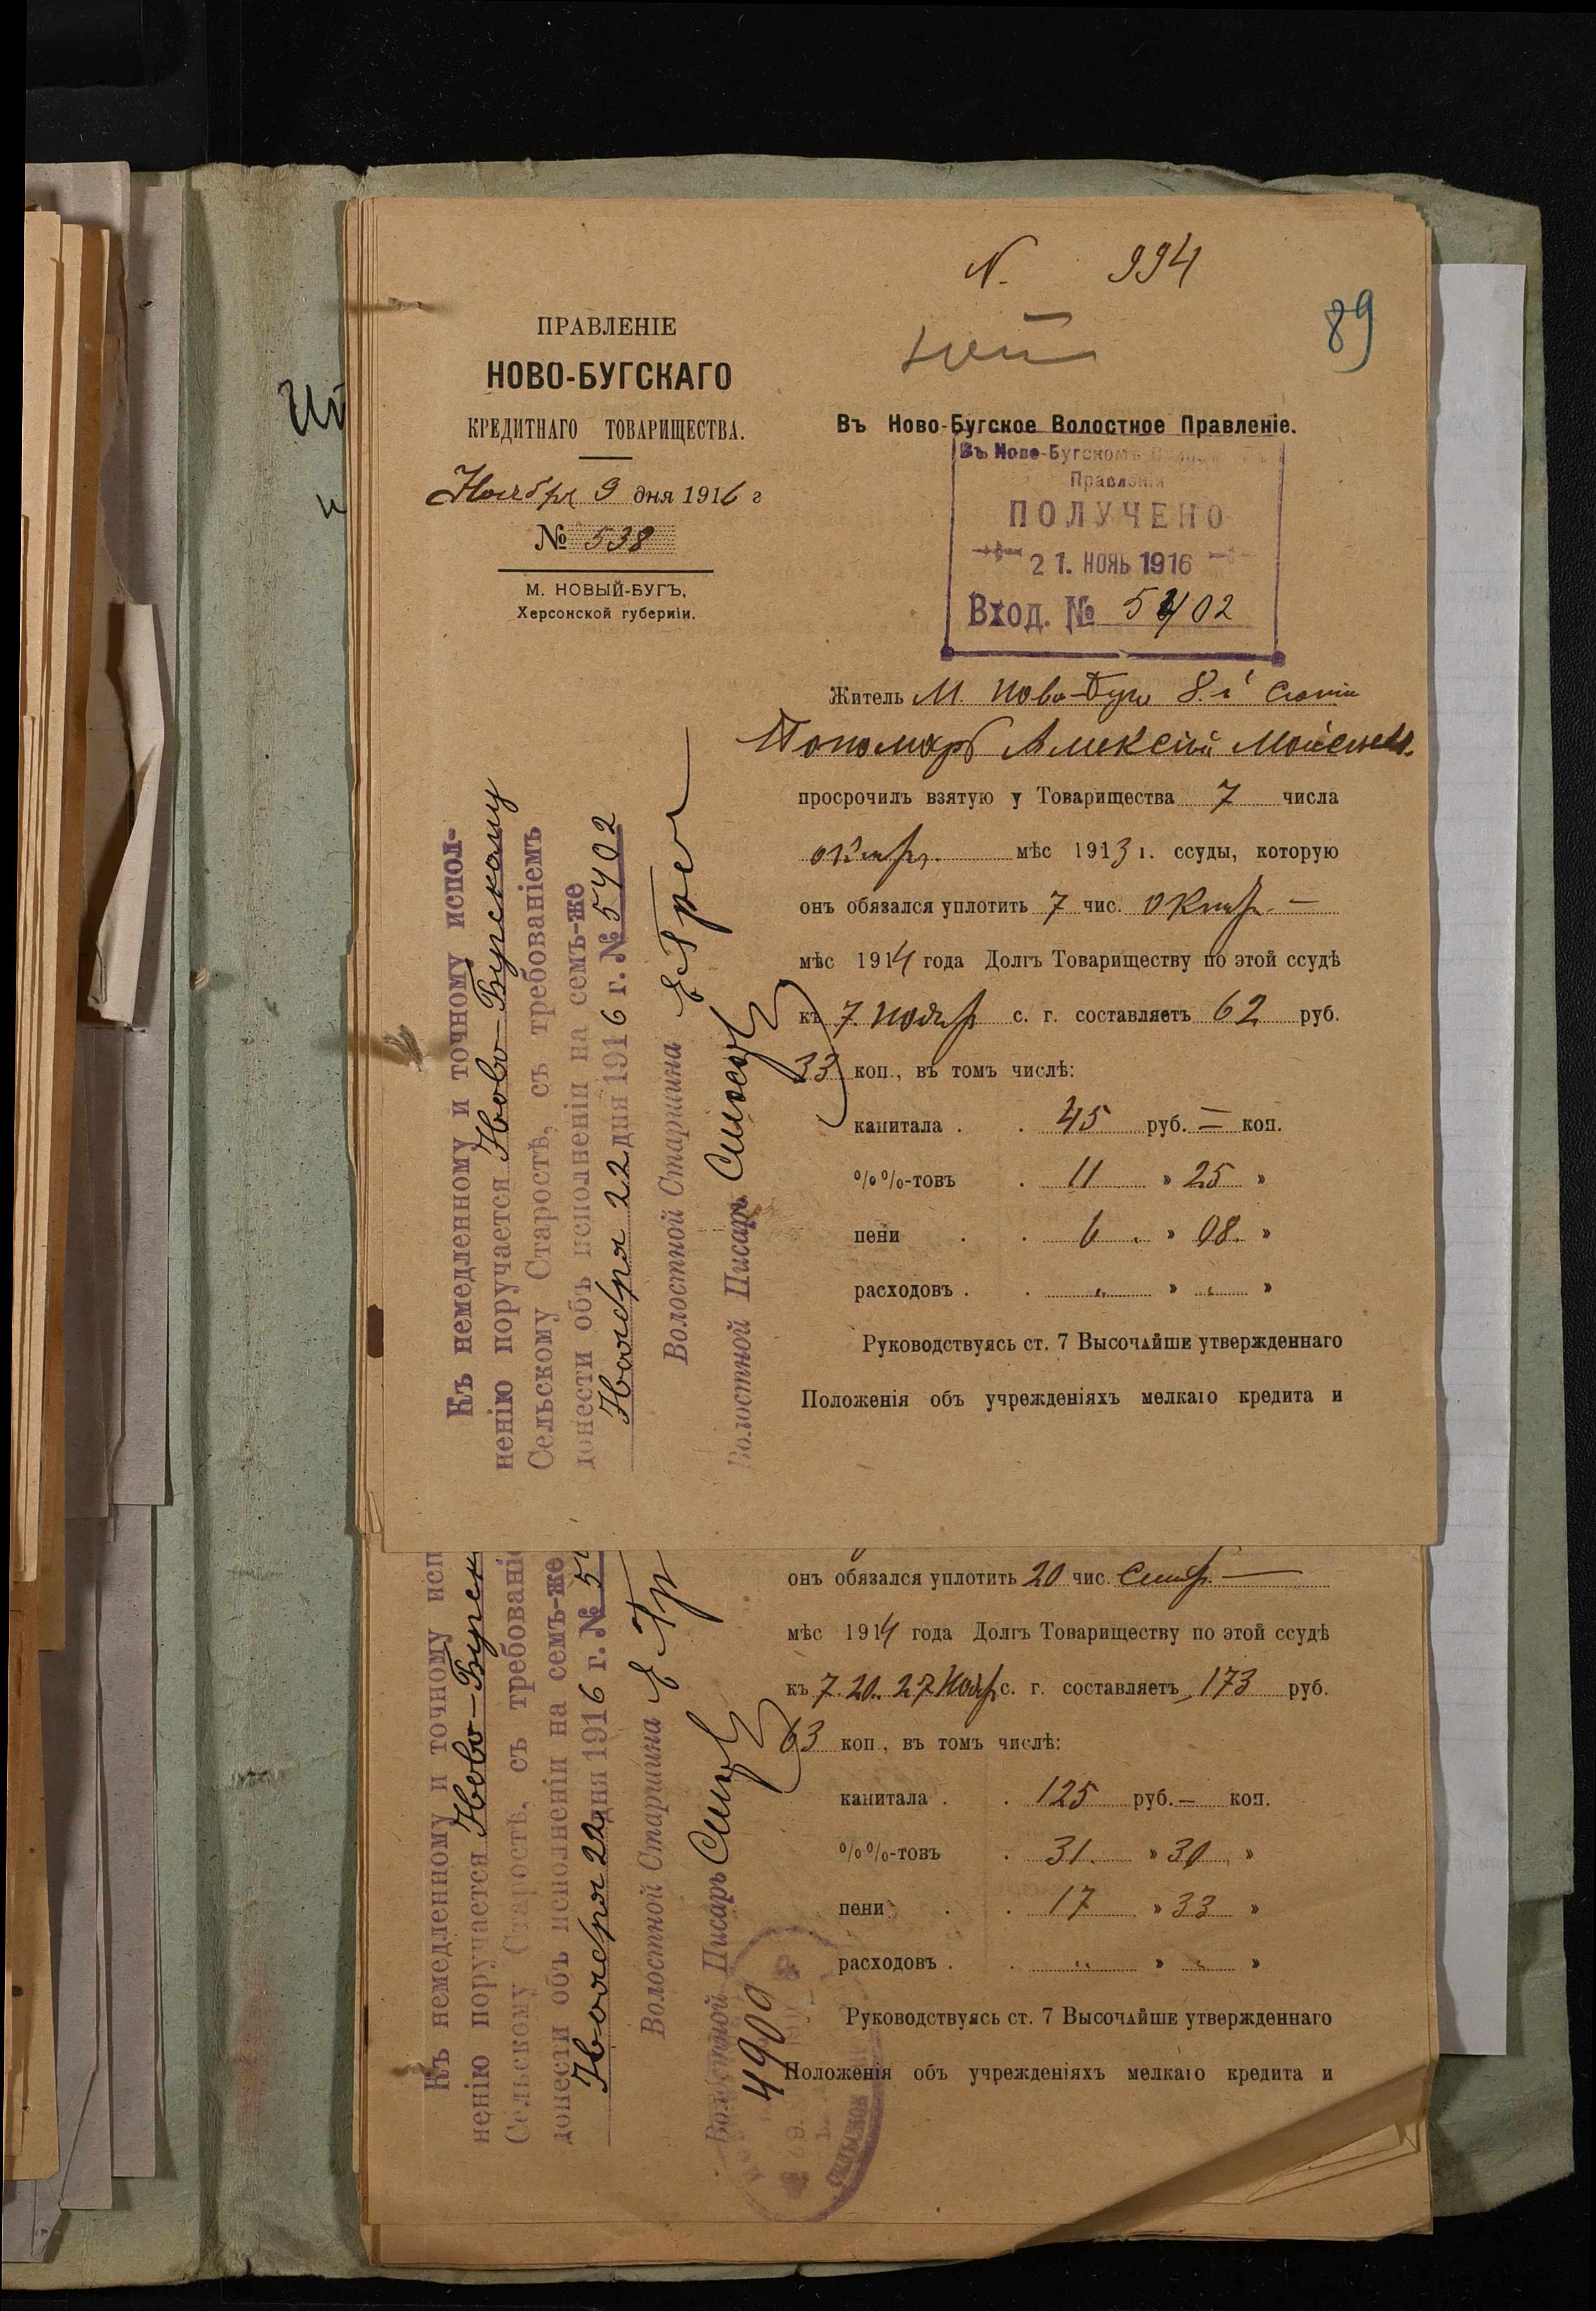 N. 994
89
ПРАВЛЕНІЕ
НОВО-БУГСКАГО
КРЕДИТНАГО ТОВАРИЩЕСТВА.
Ноября 9 дня 1916 г
№ 538
М. НОВЫЙ-БУГЪ,
Херсонской губерніи.
Въ Ново-Бугское Волостное Правленіе.
Въ Ново-Бугскомъ
Правленіи
ПОЛУЧЕНО
21. НОЯБ 1916
Вход. № 5402
Житель М. Ново-Буга 8-й
Пономарь Алексѣй Моисеев.
просрочилъ взятую у Товарищества 7 числа
октяб. мѣс 1913 г. ссуды, которую
онъ обязался уплотить 7 чис. Октяб. —
мѣс 1914 года Долгъ Товариществу по этой ссудѣ
къ 7 Нояб с. г. составляетъ 62 руб.
33 коп., въ томъ числѣ:
капитала . . 45 руб. — коп.
%%-товъ . 11 » 25 »
пени . . 6 . » 08. »
расходовъ . . „ » „ »
Руководствуясь ст. 7 Высочайше утвержденнаго
Положенія объ учрежденіяхъ мелкаго кредита и
Къ немедленному и точному испол-
ненію поручается Ново-Бугскому
Сельскому Старостѣ, съ требованіемъ
донести объ исполненіи на семъ-же
Ноября 22 дня 1916 г. № 5402
Волостной Старшина
Волостной Писарь
онъ обязался уплотить 20 чис. Сентяб. —
мѣс 1914 года Долгъ Товариществу по этой ссудѣ
къ 7. 20. 27 Нояб с. г. составляетъ 173 руб.
63 коп., въ томъ числѣ:
капитала . . 125 руб. — коп.
%%-товъ . 31. » 30 »
пени . . 17 » 33 »
расходовъ . . „ » „ »
Руководствуясь ст. 7 Высочайше утвержденнаго
Положенія объ учрежденіяхъ мелкаго кредита и
Къ немедленному и точному исп
ненію поручается Ново-Бугск
Сельскому Старостѣ, съ требованіе
донести объ исполненіи на семъ-же
Ноября 22 дня 1916 г. № 5
Волостной Старшина
Волостной Писарь
4900